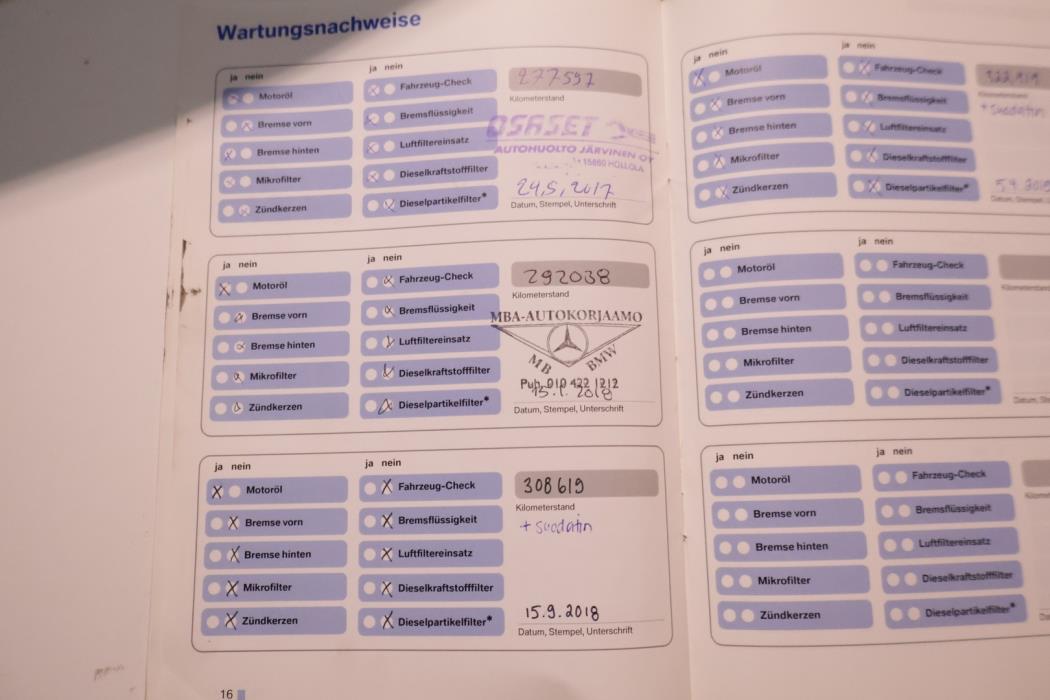 Wartungsnachweise
ja nein
ja nein
Motoröl
Fahrzeug-Check
277597
Kilometerstand
Bremse vorn
Bremsflüssigkeit
Bremse hinten
Luftfiltereinsatz
OSASET
AUTOHUOLTO JÄRVINEN OY
15860 HOLLOLA
Mikrofilter
Dieselkraftstofffilter
24,5,2017
Zündkerzen
Dieselpartikelfilter*
Datum, Stempel, Unterschrift
ja nein
ja nein
Motoröl
Fahrzeug-Check
292038
Kilometerstand
Bremse vorn
Bremsflüssigkeit
MBA-AUTOKORJAAMO
Bremse hinten
Luftfiltereinsatz
MB BMW
Mikrofilter
Dieselkraftstofffilter
Puh. 010 422 1212
15.1.2018
Zündkerzen
Dieselpartikelfilter*
Datum, Stempel, Unterschrift
ja nein
ja nein
X Motoröl
X Fahrzeug-Check
308619
Kilometerstand
X Bremse vorn
X Bremsflüssigkeit
+ suodatin
X Bremse hinten
X Luftfiltereinsatz
X Mikrofilter
X Dieselkraftstofffilter
15.9.2018
X Zündkerzen
X Dieselpartikelfilter*
Datum, Stempel, Unterschrift
16
ja nein
ja nein
Motoröl
Fahrzeug-Check
Bremse vorn
Bremsflüssigkeit
+ suodatin
Bremse hinten
Luftfiltereinsatz
Mikrofilter
Dieselkraftstofffilter
Zündkerzen
Dieselpartikelfilter*
ja nein
ja nein
Motoröl
Fahrzeug-Check
Bremse vorn
Bremsflüssigkeit
Bremse hinten
Luftfiltereinsatz
Mikrofilter
Dieselkraftstofffilter
Zündkerzen
Dieselpartikelfilter*
ja nein
ja nein
Motoröl
Fahrzeug-Check
Bremse vorn
Bremsflüssigkeit
Bremse hinten
Luftfiltereinsatz
Mikrofilter
Dieselkraftstofffilter
Zündkerzen
Dieselpartikelfilter*